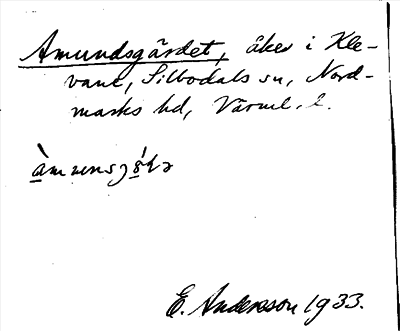 Amundsgärdet, åker i Kle-
vane, Sillbodals sn, Nord-
marks hd, Värml. l.
E. Andersson 1933.